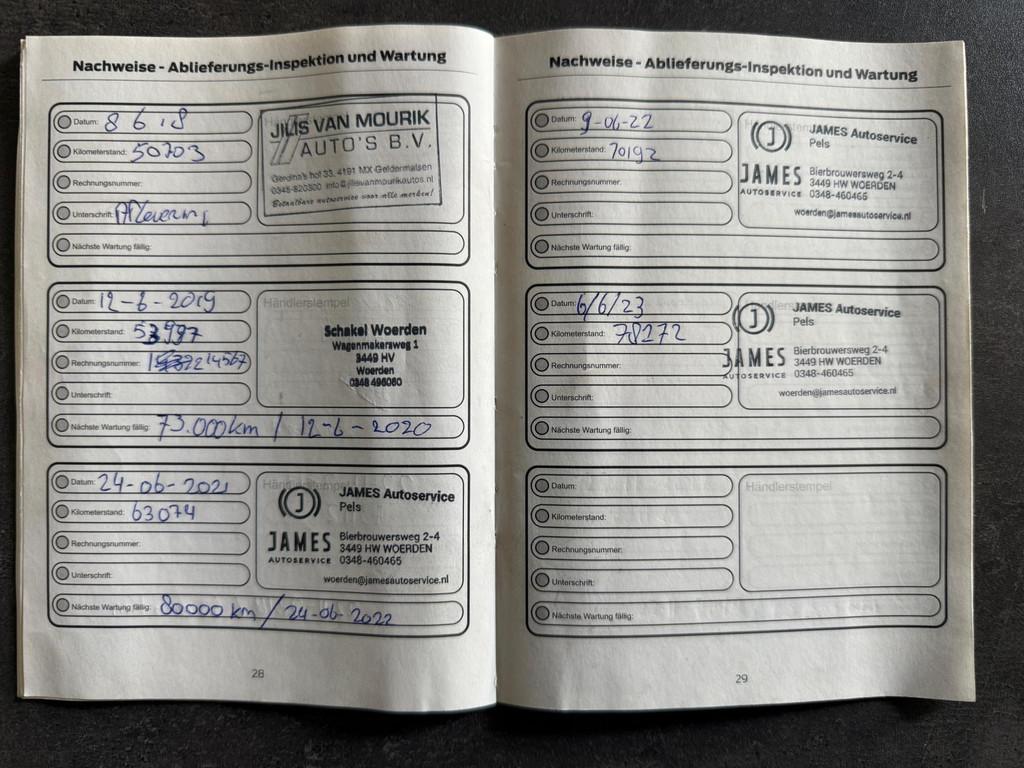 Nachweise - Ablieferungs-Inspektion und Wartung
Datum: 8 6 18
Kilometerstand: 50703
Rechnungsnummer:
Unterschrift: Aflevering
Nächste Wartung fällig:
JILIS VAN MOURIK
AUTO'S B.V.
Gerdina's hof 33, 4191 MX Geldermalsen
0345-820300 info@jilisvanmourikautos.nl
Betaalbare autoservice voor alle merken!
Datum: 12-6-2019
Kilometerstand: 53997
Rechnungsnummer: 214567
Unterschrift:
Nächste Wartung fällig: 73.000km / 12-6-2020
Händlerstempel
Schakel Woerden
Wagenmakersweg 1
3449 HV
Woerden
0348 496060
Datum: 24-06-2021
Kilometerstand: 63074
Rechnungsnummer:
Unterschrift:
Nächste Wartung fällig: 80000 km / 24-06-2022
JAMES Autoservice
Pels
JAMES
AUTOSERVICE
Bierbrouwersweg 2-4
3449 HW WOERDEN
0348-460465
woerden@jamesautoservice.nl
28
Nachweise - Ablieferungs-Inspektion und Wartung
Datum: 9-06-22
Kilometerstand: 70192
Rechnungsnummer:
Unterschrift:
Nächste Wartung fällig:
JAMES Autoservice
Pels
JAMES
AUTOSERVICE
Bierbrouwersweg 2-4
3449 HW WOERDEN
0348-460465
woerden@jamesautoservice.nl
Datum: 6/6/23
Kilometerstand: 78272
Rechnungsnummer:
Unterschrift:
Nächste Wartung fällig:
JAMES Autoservice
Pels
JAMES
AUTOSERVICE
Bierbrouwersweg 2-4
3449 HW WOERDEN
0348-460465
woerden@jamesautoservice.nl
Datum:
Kilometerstand:
Rechnungsnummer:
Unterschrift:
Nächste Wartung fällig:
Händlerstempel
29